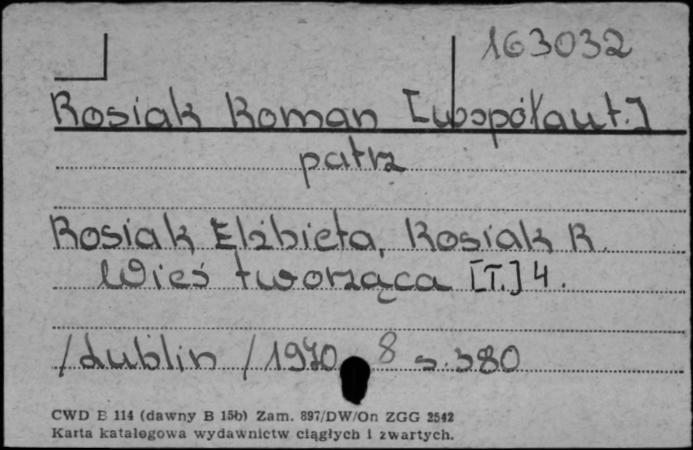 163032
Rosiak Roman [współaut.]
patrz
Rosiak Elżbieta, Rosiak R.
Wieś tworząca [T.] 4.
/Lublin / 1970 8 s. 380
CWD B 114 (dawny B 15b) Zam. 897/DW/On ZGG 2542
Karta katalogowa wydawnictw ciągłych i zwartych.